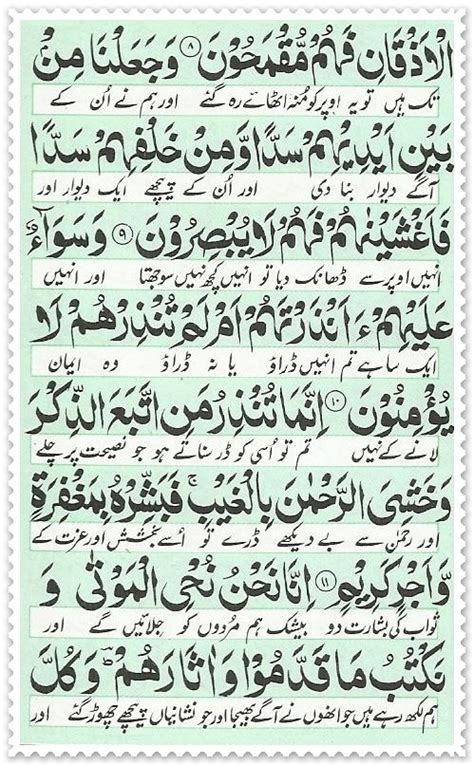 الْاَذْقَانِ فَهُمْ مُّقْمَحُوْنَ ۸ وَجَعَلْنَا مِنْۢ
تک ہیں تو یہ اوپر کو منہ اٹھائے رہ گئے اور ہم نے اُن کے
بَيْنِ اَيْدِيْهِمْ سَدًّا وَّمِنْ خَلْفِهِمْ سَدًّا
آگے دیوار بنا دی اور اُن کے پیچھے ایک دیوار اور
فَاَغْشَيْنٰهُمْ فَهُمْ لَا يُبْصِرُوْنَ ۹ وَسَوَآءٌ
انہیں اوپر سے ڈھانک دیا تو انہیں کچھ نہیں سوجھتا اور انہیں
عَلَيْهِمْ ءَاَنْذَرْتَهُمْ اَمْ لَمْ تُنْذِرْهُمْ لَا
ایک سا ہے تم انہیں ڈراؤ یا نہ ڈراؤ وہ ایمان
يُؤْمِنُوْنَ ۱۰ اِنَّمَا تُنْذِرُ مَنِ اتَّبَعَ الذِّكْرَ
لانے کے نہیں تم تو اُسی کو ڈر سناتے ہو جو نصیحت پر چلے
وَخَشِيَ الرَّحْمٰنَ بِالْغَيْبِ ۚ فَبَشِّرْهُ بِمَغْفِرَةٍ
اور رحمٰن سے بے دیکھے ڈرے تو اُسے بخشش اور عزت کے
وَّاَجْرٍ كَرِيْمٍ ۱۱ اِنَّا نَحْنُ نُحْيِ الْمَوْتٰى وَ
ثواب کی بشارت دو بیشک ہم مُردوں کو جِلائیں گے اور
نَكْتُبُ مَا قَدَّمُوْا وَاٰثَارَهُمْ ؕ وَكُلَّ
ہم لکھ رہے ہیں جو انھوں نے آگے بھیجا اور جو نشانیاں پیچھے چھوڑ گئے اور